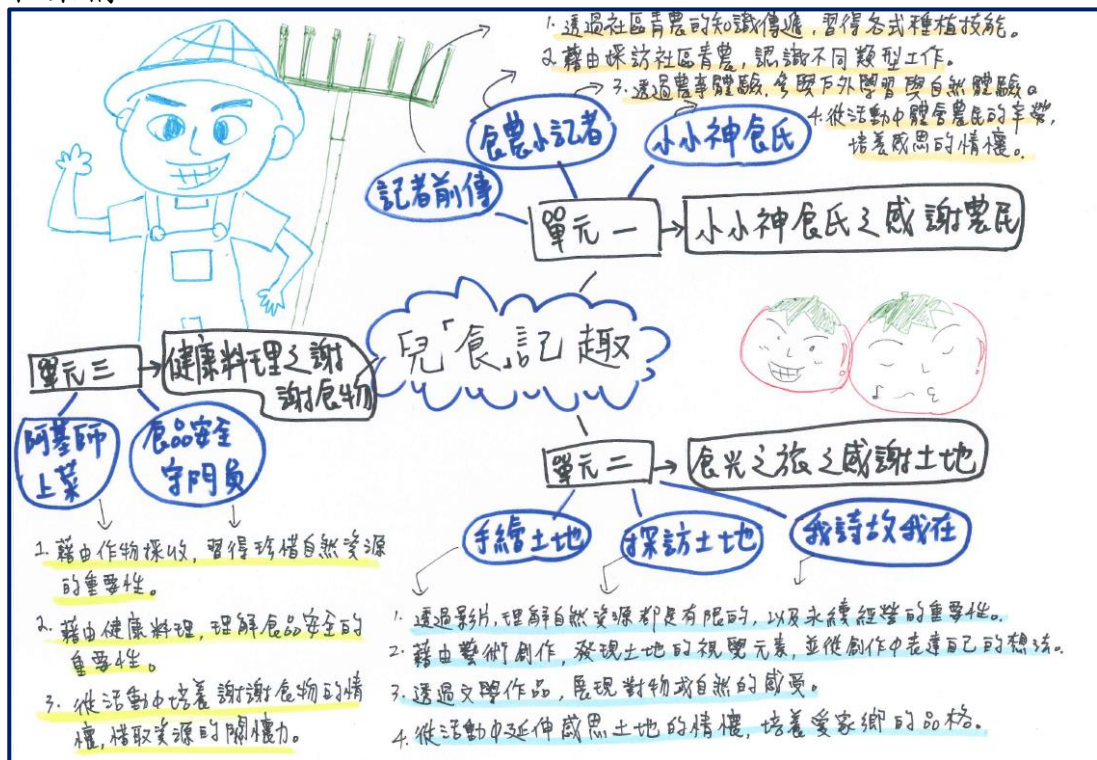 1. 透過社區青農的知識傳遞,習得各式種植技能。
2. 藉由採訪社區青農,認識不同類型工作。
3. 透過農事體驗,參與戶外學習與自然體驗。
4. 從活動中體會農民的辛勞,
培養感恩的情懷。
食農小記者
小小神食氏
記者前傳
單元一
小小神食氏之感謝農民
兒「食」記趣
單元三
健康料理之謝
謝食物
阿基師
上菜
食品安全
守門員
單元二
食光之旅之感謝土地
手繪土地
探訪土地
我詩故我在
1. 藉由作物採收,習得珍惜自然資源
的重要性。
2. 藉由健康料理,理解食品安全的
重要性。
3. 從活動中培養謝謝食物的情
懷,惜取資源的關懷力。
1. 透過影片,理解自然資源都是有限的,以及永續經營的重要性。
2. 藉由藝術創作,發現土地的視覺元素,並從創作中表達自己的想法。
3. 透過文學作品,展現對物或自然的感受。
4. 從活動中延伸感恩土地的情懷,培養愛家鄉的品格。